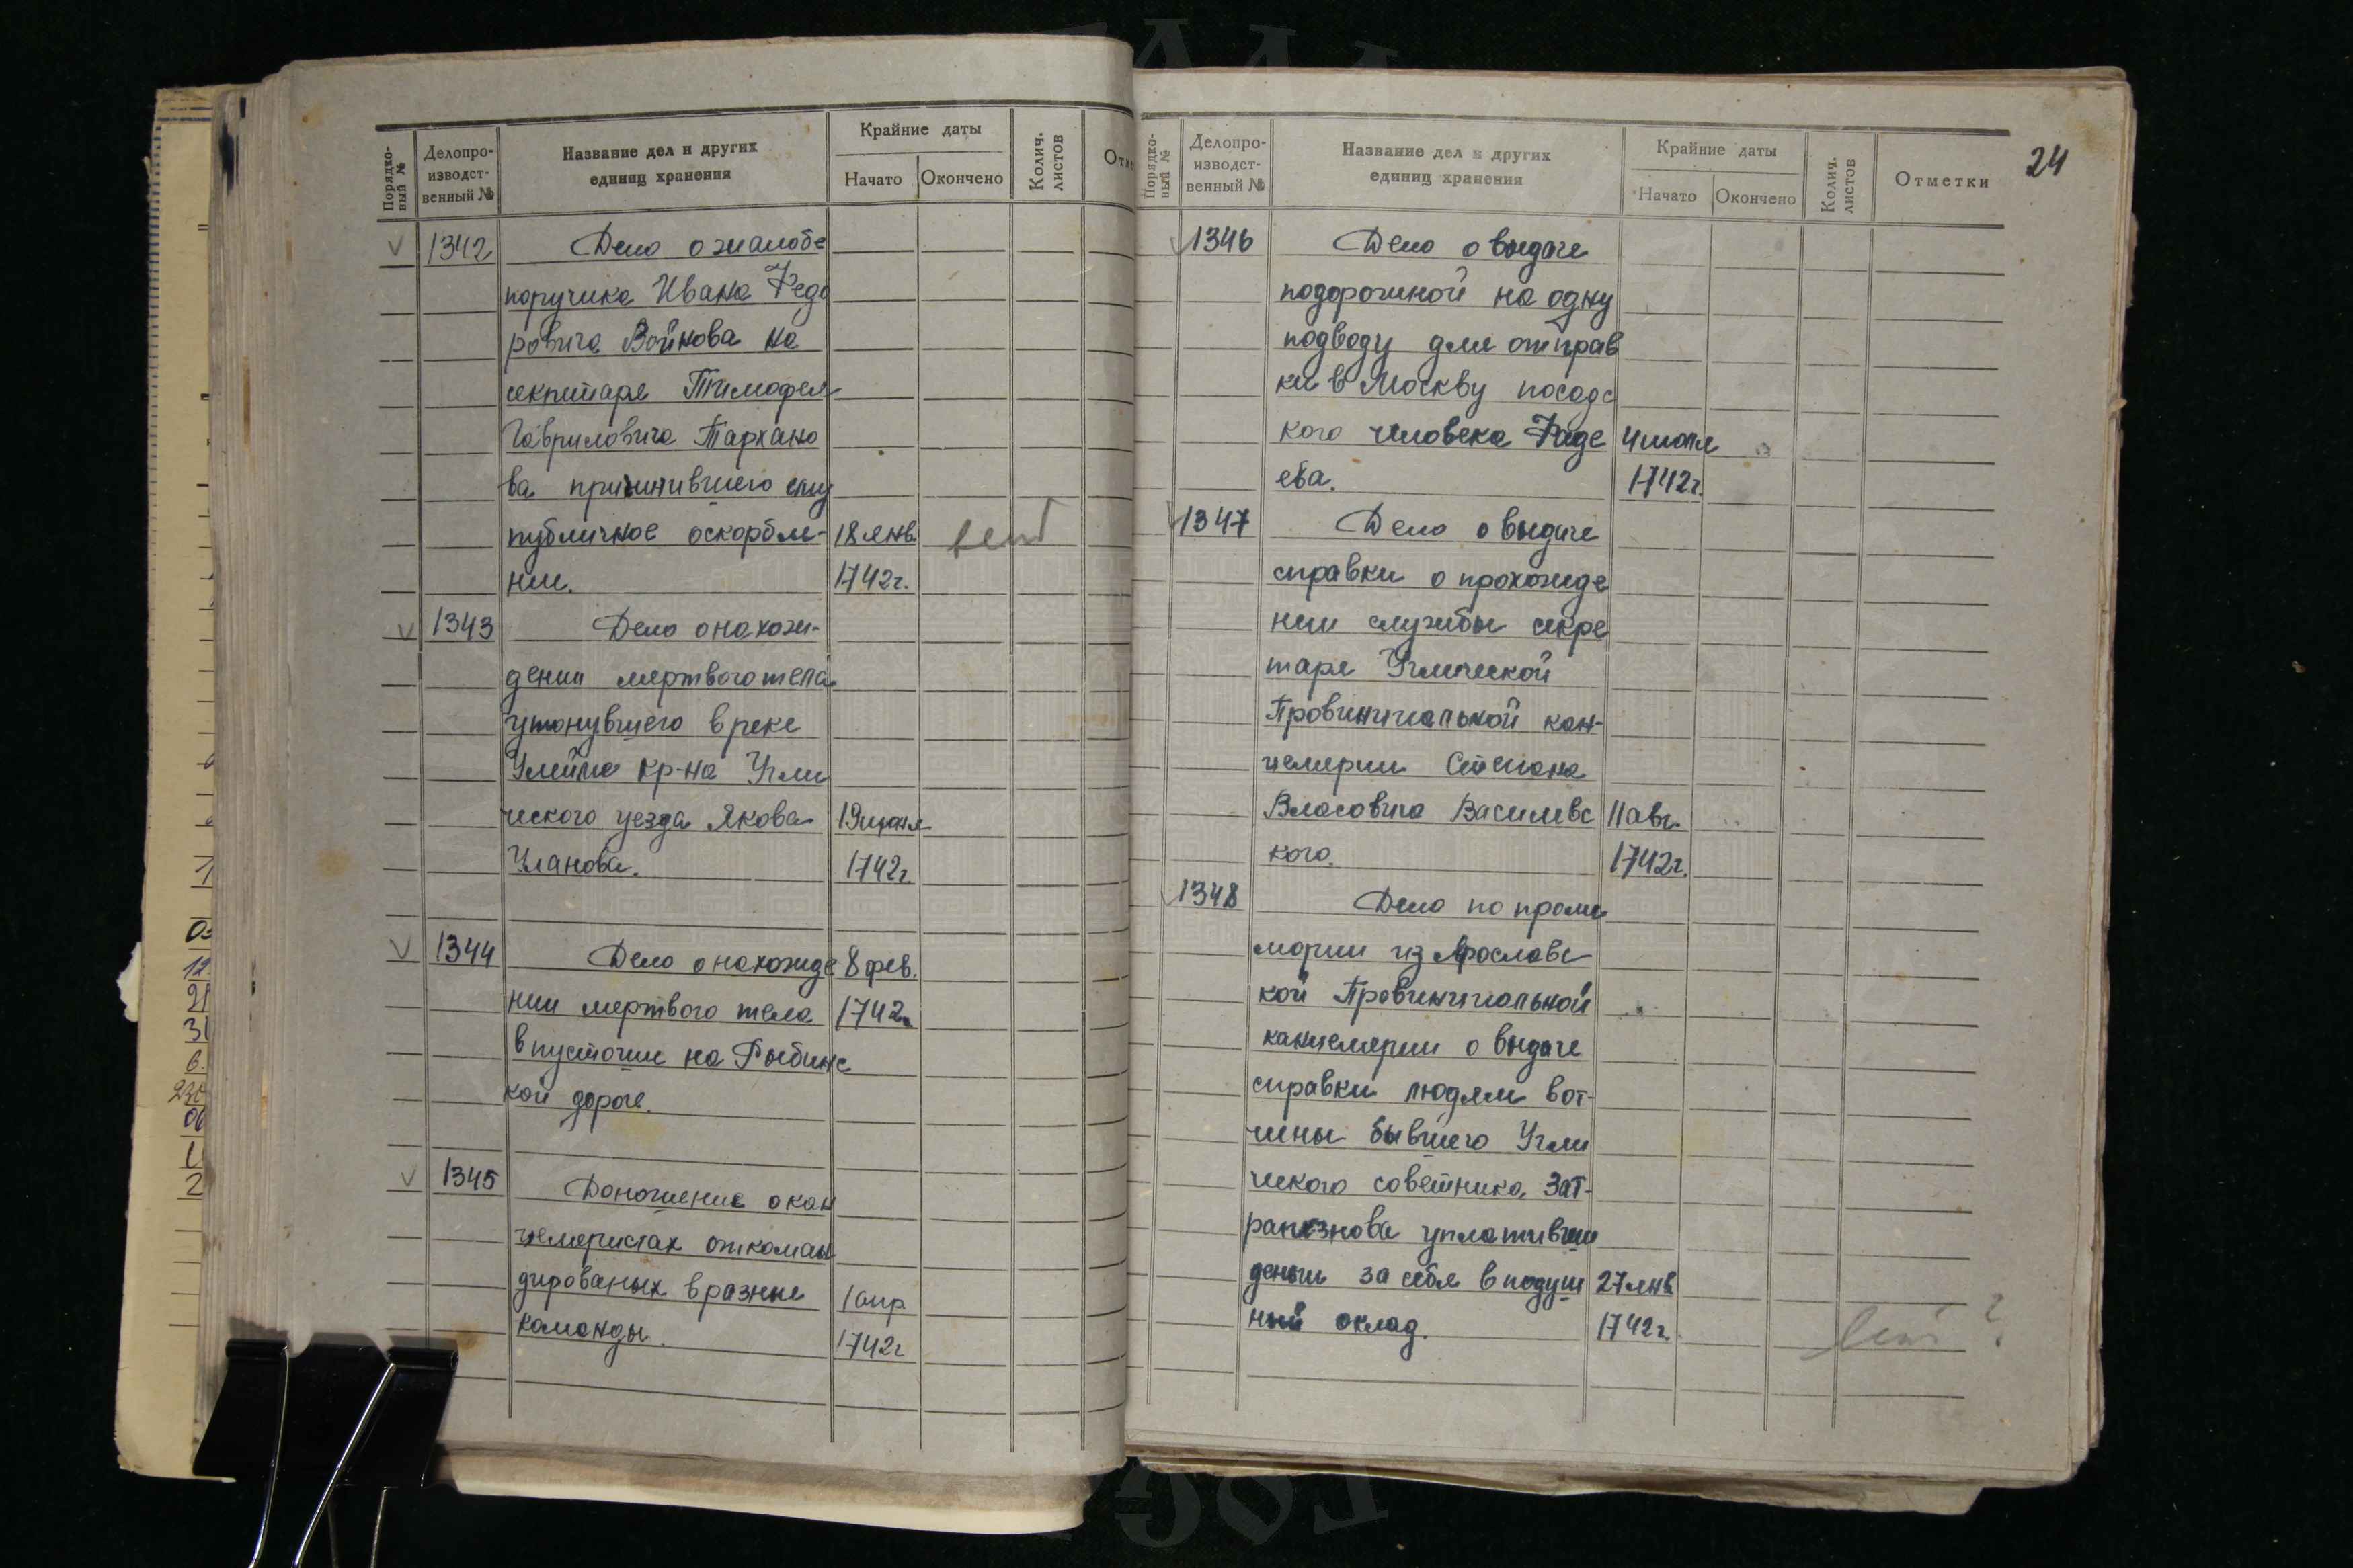 Порядко-
вый №
Делопро-
изводст-
венный №
Название дел и других
единиц хранения
Крайние даты
Начато
Окончено
Колич.
листов
V 1342 Дело о жалобе
поручика Ивана Федо
ровича Войнова на
секретаря Тимофея
Гавриловича Тархано
ва причинившего ему
публичное оскорбле- 18 янв.
нии. 1742г.
V 1343 Дело о нахож-
дении мертвого тела
утонувшего в реке
Улейме кр-на Угли
ческого уезда Якова 19 июня
Уланова. 1742г.
V 1344 Дело о нахожде 8 фев.
нии мертвого тела 1742г.
в пустоши на Рыбинс
кой дороге.
V 1345 Доношение о кан
целяристах откоман
дированых в разные 1 апр.
команды. 1742г
24
Порядко-
вый №
Делопро-
изводст-
венный №
Название дел и других
единиц хранения
Крайние даты
Начато
Окончено
Колич.
листов
Отметки
V 1346 Дело о выдаче
подорожной на одну
подводу для отправ
ки в Москву посадс
кого человека Фаде 4 июля
ева. 1742г.
V 1347 Дело о выдаче
справки о прохожде
нии службы секре
таря Углической
Провинциальной кан-
целярии Степана
Власовича Василевс 11 авг.
кого. 1742г.
V 1348 Дело по проме
мории из Ярославс
кой Провинциальной
канцелярии о выдаче
справки людям вот-
чины бывшего Угли
ческого советника Зат-
рапезнова уплативши
деньги за себя в подуш 27 янв
ный оклад. 1742г.